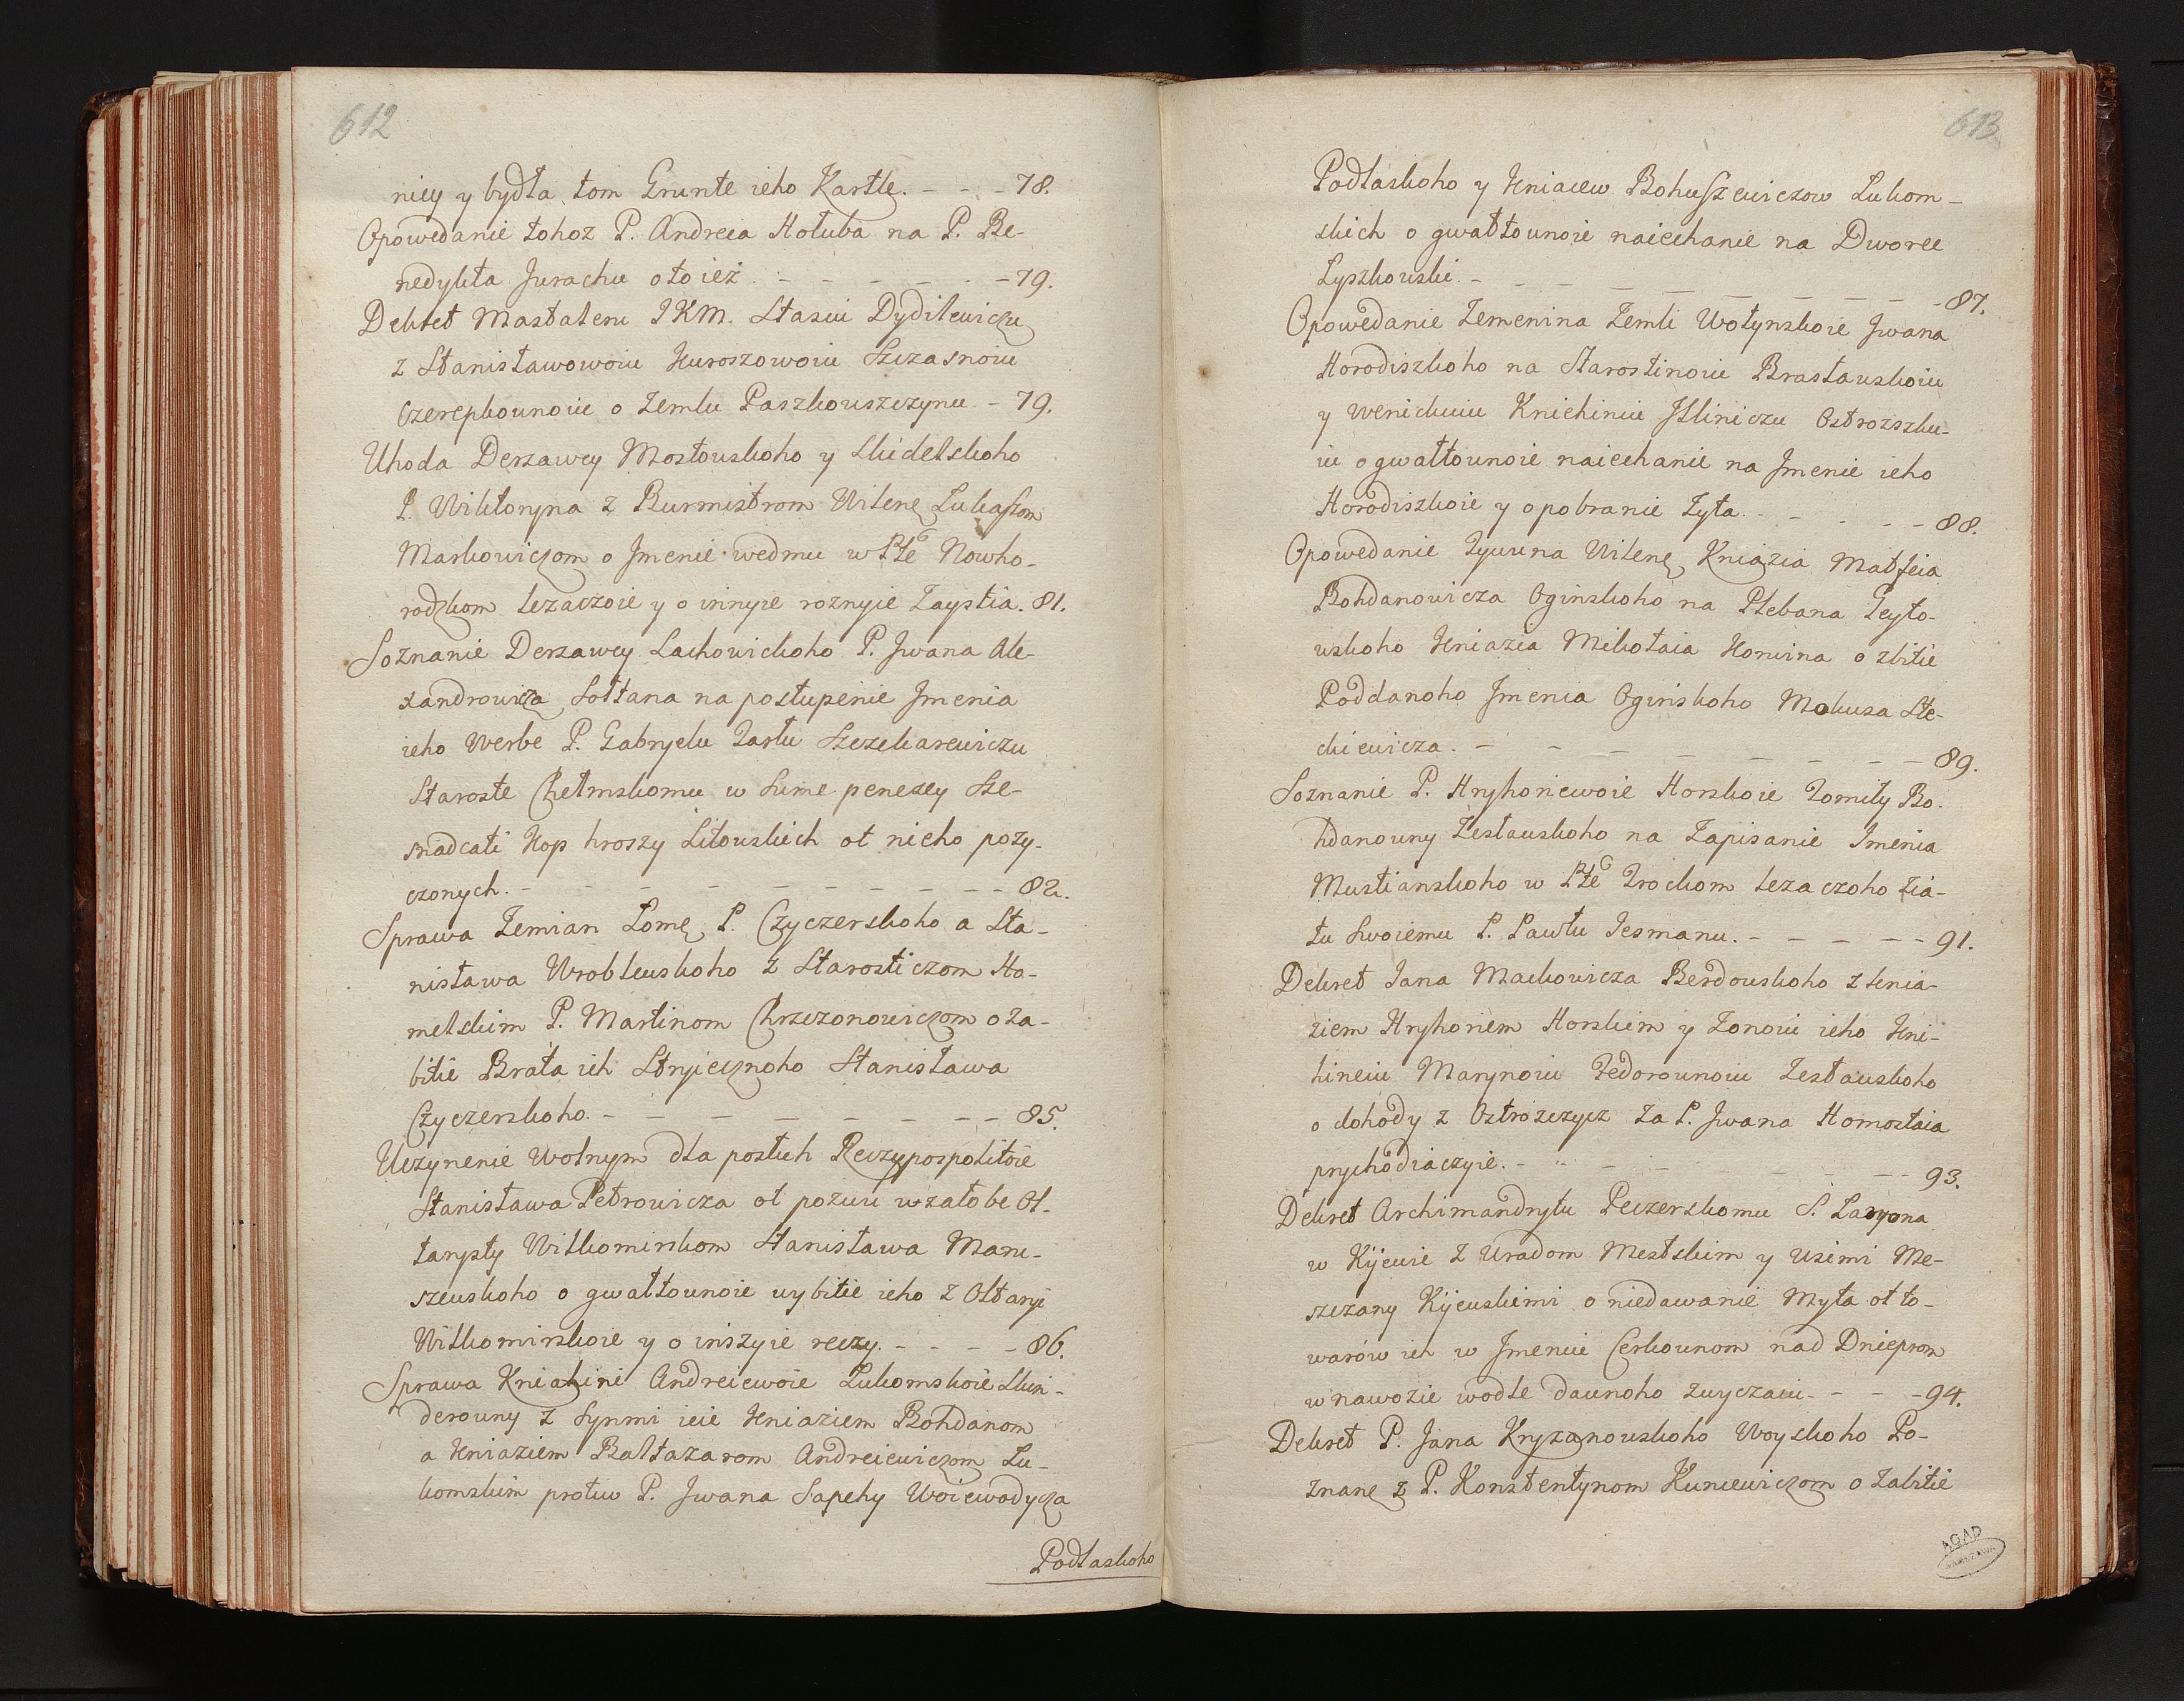 612
niey y bydła tom Grunte ieho Kartle. - - - 78.
Opowedanie tohoz P. Andreia Hołuba na P. Be-
nedykta Jurachu o to ież - - - - - - 79.
Dekret Mastaleru JKM. Stasiu Dydilewiczu
z Stanisławowoiu Kuroszowoiu Szczasnoiu
Czerepkownoiu o Zemlu Paszkouszczynu - 79.
Uhoda Derzawcy Mostouskoho y Skidelskoho
P. Wiktoryna z Burmistrom Wilenę Lukaszom
Markowiczom o Jmenie wedmu w Płe Nowho-
rodzkom leżaczoie y o innyie roznyie Zaystia. 81.
Soznanie Derzawcy Lachowickoho P. Jwana Ale-
xandrowicza Sołtana na postupenie Jmenia
ieho Werbe P. Gabryelu Tarłu Szczekarewiczu
Staroste Chełmskomu w Sume penezey Sze-
snadcati Kop hroszy Litouskich ot nieho pozy-
czonych. - - - - - - - - - - 82.
Sprawa Zemian Łomę, P. Czyczerskoho a Sta-
nisława Wroblewskoho z Starosticzom Ho-
melskim P. Martinom Chrzczonowiczom o za-
bitie Brata ich Stryiecznoho Stanisława
Czyczerskoho. - - - - - - - - 85.
Uczynenie wolnym dla posłuh Reczypospolitoie
Stanisława Petrowicza ot pozwu w załobe Ol-
tarysty Wilkomirskom Stanisława Maru-
szeuskoho o gwałtounoie wybitie ieho z Ołtaryi
Wilkomirskoie y o inszyie reczy. - - - - 86.
Sprawa Kniahini Andreiewoie Lukomskoie Skin-
derouny z Synmi ieie Kniaziem Bohdanom
a Kniaziem Baltazarom Andreiewiczom Lu-
komskim protiw P. Jwana Sapehy Woiewodycza
Podlaskoho
613
Podlaskoho y Kniaiew Bohuszewiczow Lukom-
skich o gwałtounoie naiechanie na Dworec
Łyszkouski. - - - - - - - - - 87.
Opowedanie Zemenina Zemli Wołynskoie Jwana
Horodiszkoho na Starostinoiu Brasławskoiu
y Wenickuiu Kniehiniu Jlliniczu Ostrozszku-
iu o gwałtounoie naiechanie na Jmenie ieho
Horodiszkoie y o pobranie Zyta. - - - - - 88.
Opowedanie Tywuna Wilenę, Kniazia Matfeia
Bohdanowicza Oginskoho na Plebana Geyto-
wskoho Kniazia Mikołaia Korwina o zbitie
Poddanoho Jmenia Oginskoho Mokusa Ste-
ckiewicza. - - - - - - - - 89.
Soznanie P. Hryhoriewoie Horskoie Tomily Bo-
hdanouny Zesławskoho na Zapisanie Jmenia
Musiianskoho w Płe Trockom lezaczoho Zia-
tu Swoiemu P. Pawłu Jesmanu. - - - - - 91.
Dekret Jana Mackowicza Berdouskoho z Knia-
ziem Hryhoriem Horskim y Zonoiu ieho Kni-
hineiu Marynoiu Fedorounoiu Zesławskoho
o dohody z Ostrozczycz za P. Jwana Hornostaia
prychodiaczyie. - - - - - - - - 93.
Dekret Archimandrytu Peczerskomu S. Laryona
w Kijewie z Uradom Mestskim y Usimi Me-
szczany Kijeuskimi o niedawanie Myta ot to-
warów ich w Jmeniu Cerkounom nad Dnieprom
w nawozie wodle daunoho zwyczaiu - - - 94.
Dekret P. Jana Kryzanouskoho Woyskoho Po-
znanę z P. Konstentynom Kuncewiczom o zabitie
AGAD
WARSZAWA